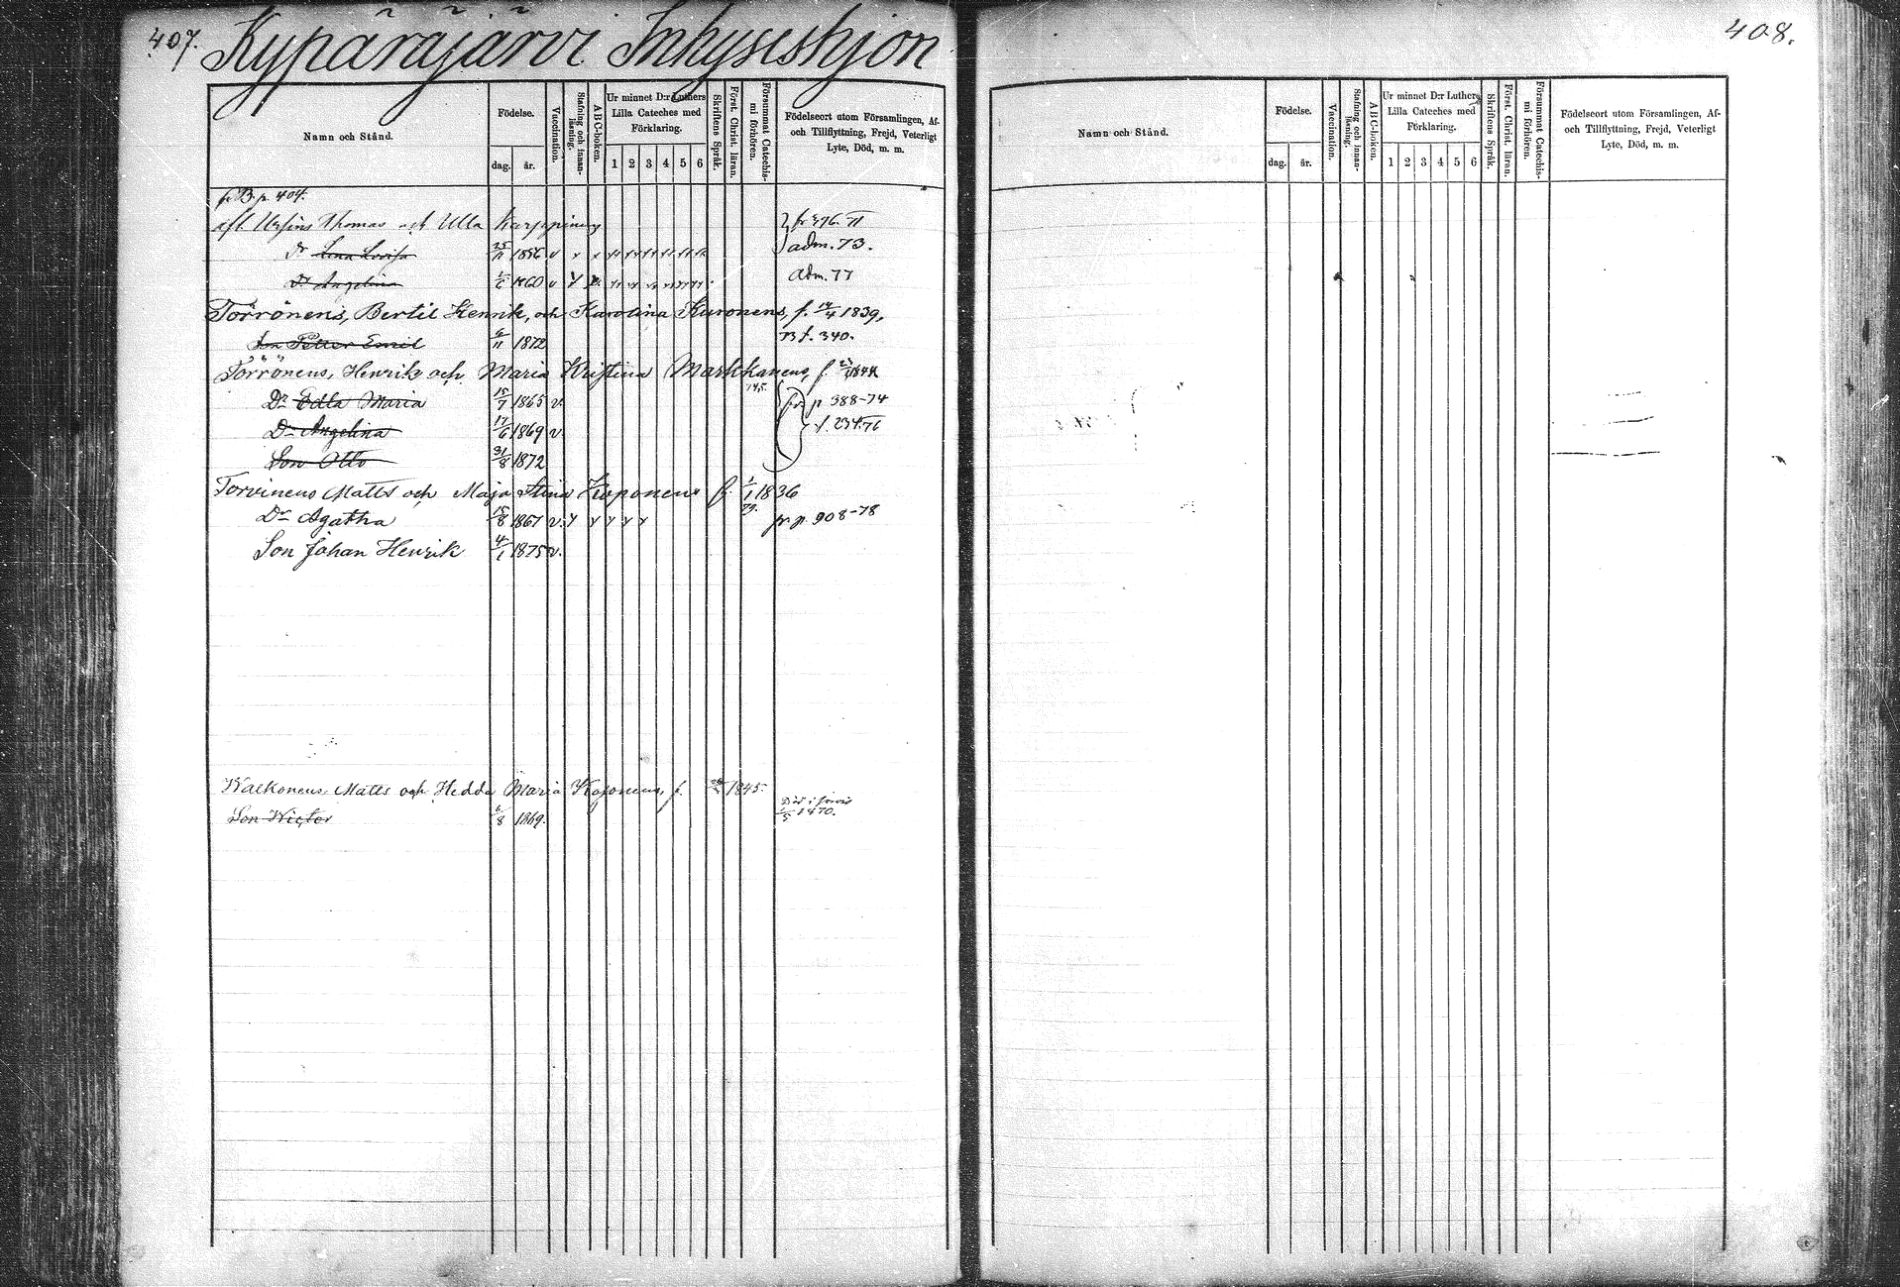 407. Kypäräjärvi Inhyseshjon
Namn och Stånd.
Födelse.
dag. år.
Vaccination.
Stafning och innan-läsning.
ABC-boken.
Ur minnet D:r Luthers
Lilla Cateches med
Förklaring.
1 2 3 4 5 6
Skriftens Språk.
Först. Christ. läran.
Försummat Catechis-mi förhören.
Födelseort utom Församlingen, Af-
och Tillflyttning, Frejd, Veterligt
Lyte, Död, m. m.
fr B p 404.
afl. Thomas och Ulla Karppinens fr 376. 71
Dr Lina Lovisa 25/11 1856 v adm. 73.
Dr Angelina 1860 v adm. 77
Törrönens, Bertil Henrik, och Karolina Kuronens, f. 14/4 1839,
Son Petter Emil 6/11 1872 B f. 340.
Törrönens, Henrik och Maria Kristina Markkanens, f. 1844
Dr Edla Maria 15/7 1865 v. fr. p 388-74
Dr Angelina 17/6 1869 v. f. 234.76
Son Otto 31/8 1872
Torvinens Matts och Maja Stina Koponens f. 1/1 1836
Dr Agatha 15/8 1867 v. fr p. 908-78
Son Johan Henrik 4/1 1875 v.
Walkonens Matts och Hedda Maria Koponens, f. 1845.
Son Wictor 6/8 1869. Död 1870.
408.
Namn och Stånd.
Födelse.
dag. år.
Vaccination.
Stafning och innan-läsning.
ABC-boken.
Ur minnet D:r Luthers
Lilla Cateches med
Förklaring.
1 2 3 4 5 6
Skriftens Språk.
Först. Christ. läran.
Försummat Catechis-mi förhören.
Födelseort utom Församlingen, Af-
och Tillflyttning, Frejd, Veterligt
Lyte, Död, m. m.